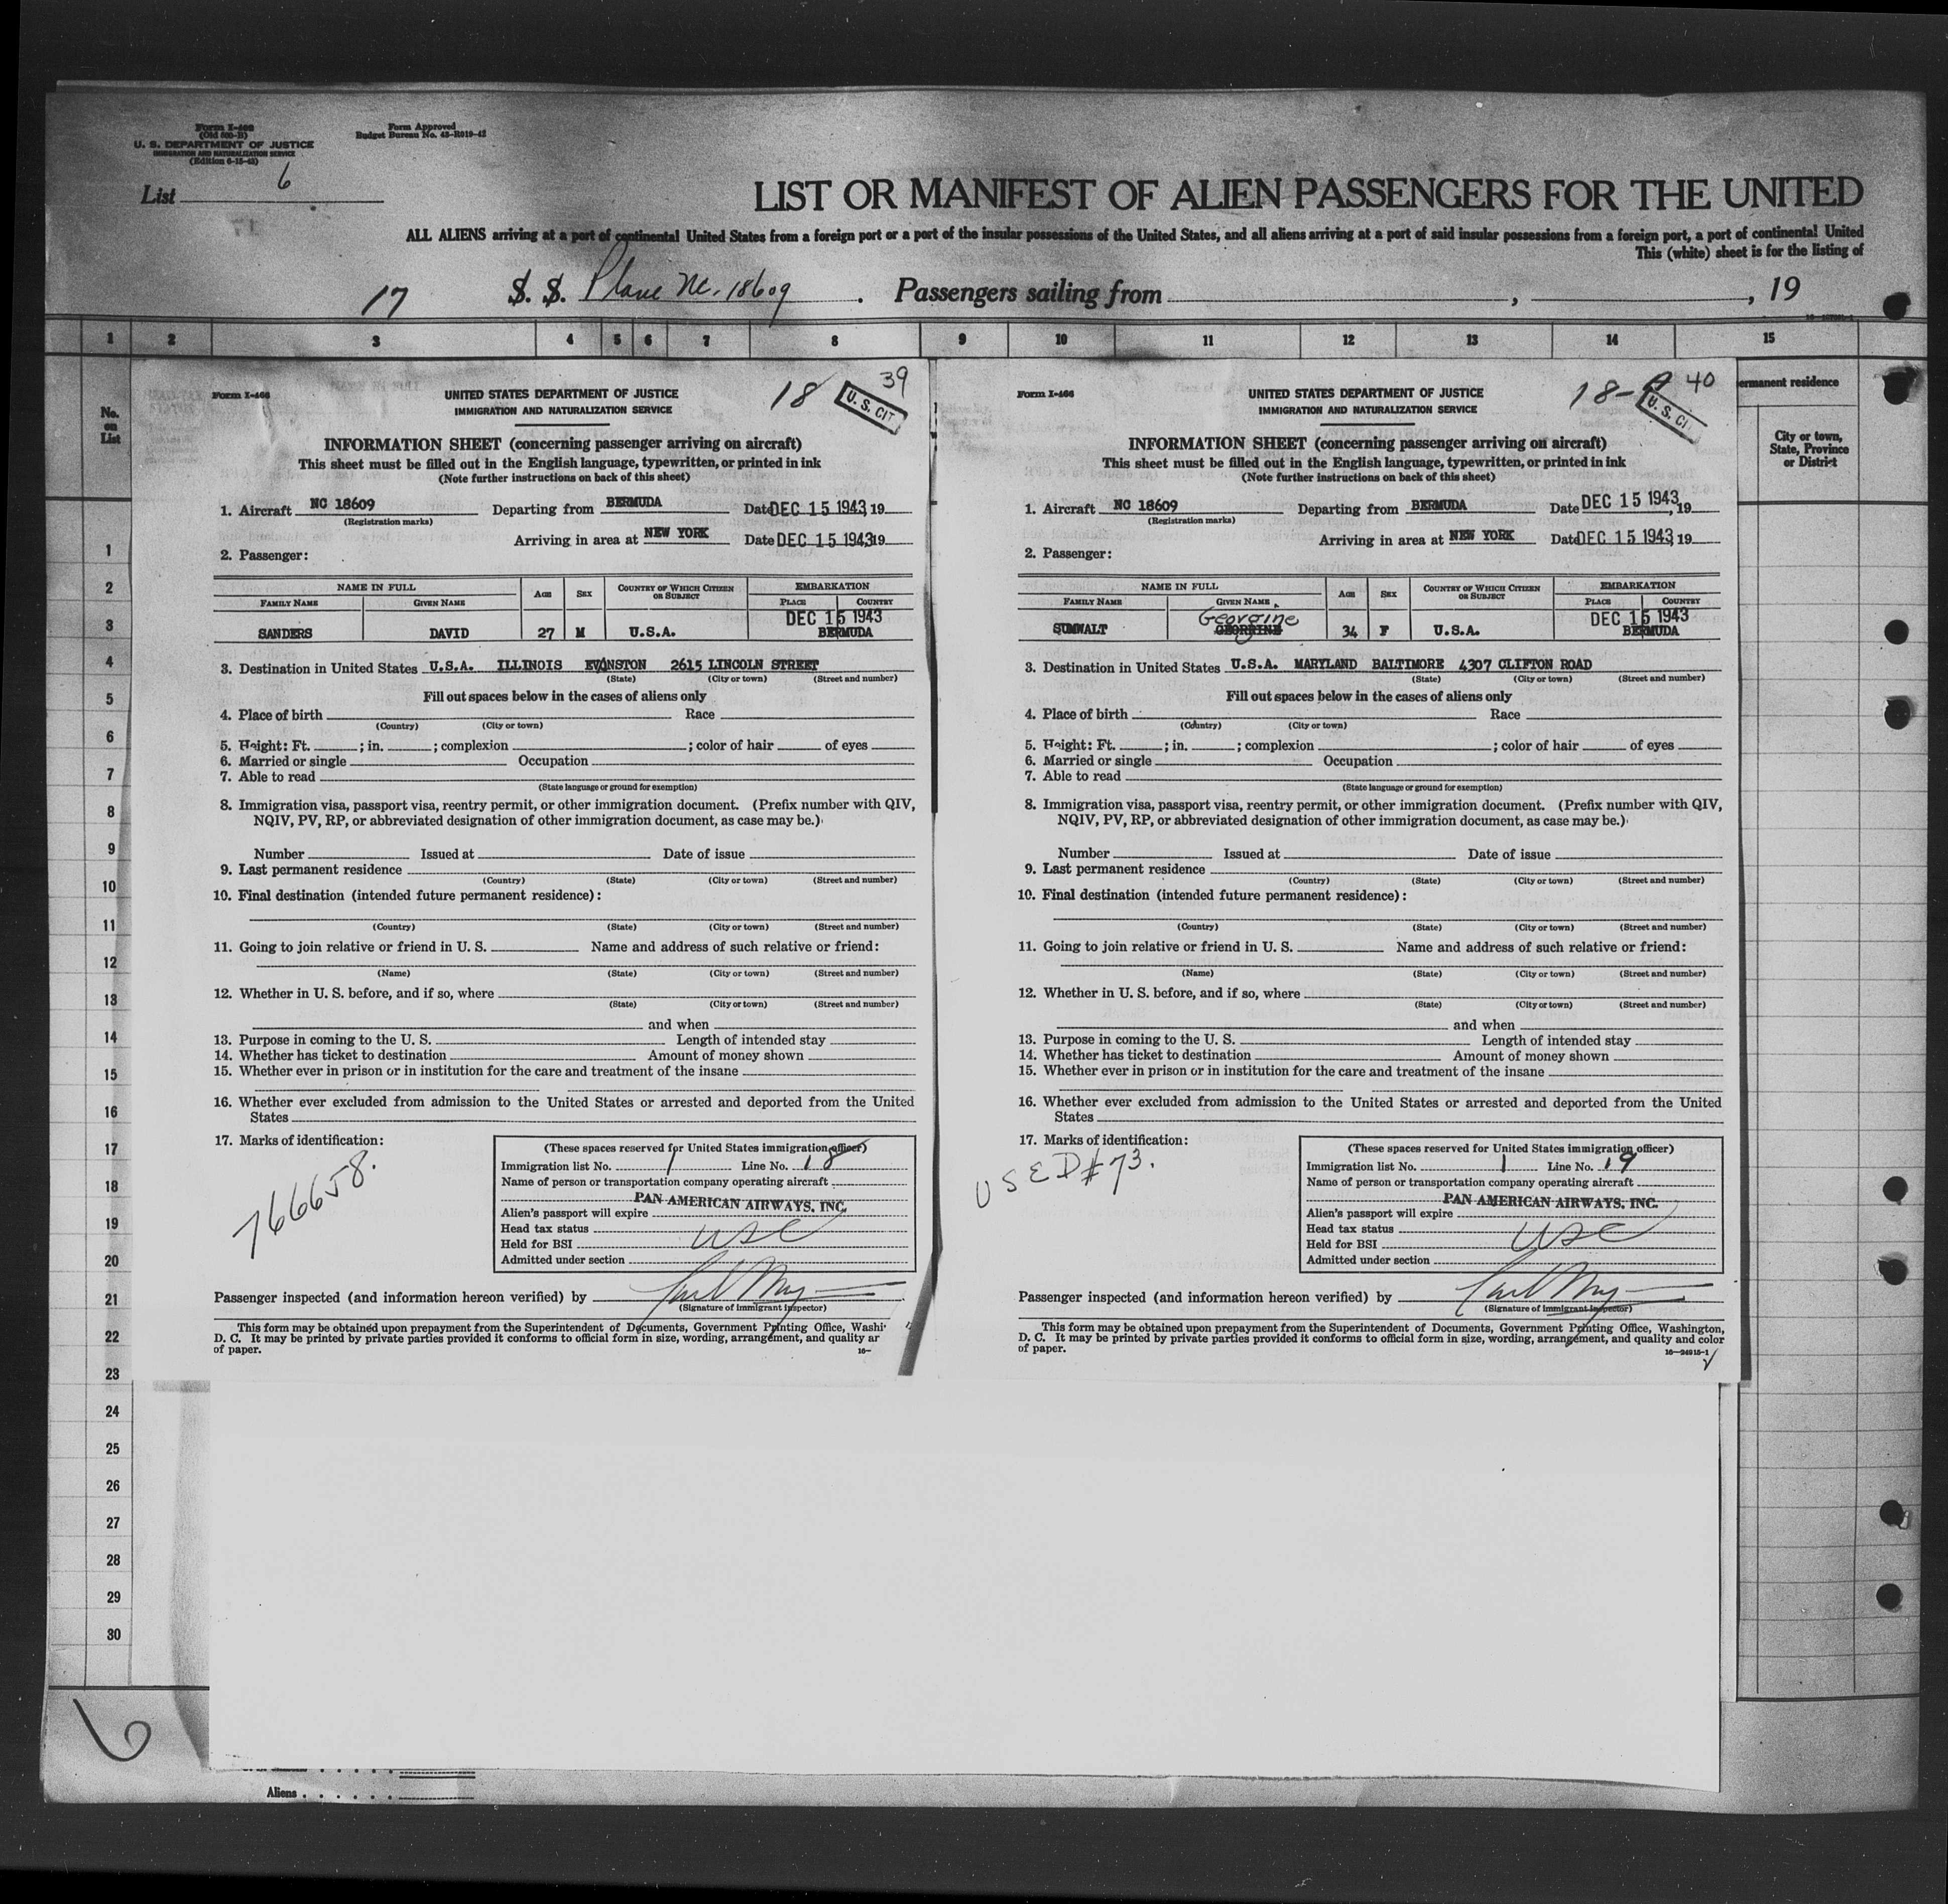 Form I-466
(Old 500-B)
U. S. DEPARTMENT OF JUSTICE
IMMIGRATION AND NATURALIZATION SERVICE
(Edition 6-15-43)
Form Approved
Budget Bureau No. 43-R019-42
List 6
LIST OR MANIFEST OF ALIEN PASSENGERS FOR THE UNITED
ALL ALIENS arriving at a port of continental United States from a foreign port or a port of the insular possessions of the United States, and all aliens arriving at a port of said insular possessions from a foreign port, a port of continental United
This (white) sheet is for the listing of
17 S. S. Plane NC. 18609 . Passengers sailing from , , 19
1 2 3 4 5 6 7 8 9 10 11 12 13 14 15
No. on List
ermanent residence
City or town, State, Province or District
1
2
3
4
5
6
7
8
9
10
11
12
13
14
15
16
17
18
19
20
21
22
23
24
25
26
27
28
29
30
6
Aliens
Form I-466
UNITED STATES DEPARTMENT OF JUSTICE
IMMIGRATION AND NATURALIZATION SERVICE
18 39
U. S. CIT
INFORMATION SHEET (concerning passenger arriving on aircraft)
This sheet must be filled out in the English language, typewritten, or printed in ink
(Note further instructions on back of this sheet)
1. Aircraft NC 18609 Departing from BERMUDA Date DEC 15 1943, 19
(Registration marks)
Arriving in area at NEW YORK Date DEC 15 1943 19
2. Passenger:
NAME IN FULL AGE SEX COUNTRY OF WHICH CITIZEN OR SUBJECT EMBARKATION
FAMILY NAME GIVEN NAME PLACE COUNTRY
DEC 15 1943
SANDERS DAVID 27 M U.S.A. BERMUDA
3. Destination in United States U.S.A. ILLINOIS EVANSTON 2615 LINCOLN STREET
(State) (City or town) (Street and number)
Fill out spaces below in the cases of aliens only
4. Place of birth Race
(Country) (City or town)
5. Height: Ft. ; in. ; complexion ; color of hair of eyes
6. Married or single Occupation
7. Able to read
(State language or ground for exemption)
8. Immigration visa, passport visa, reentry permit, or other immigration document. (Prefix number with QIV,
NQIV, PV, RP, or abbreviated designation of other immigration document, as case may be.)
Number Issued at Date of issue
9. Last permanent residence
(Country) (State) (City or town) (Street and number)
10. Final destination (intended future permanent residence):
(Country) (State) (City or town) (Street and number)
11. Going to join relative or friend in U. S. Name and address of such relative or friend:
(Name) (State) (City or town) (Street and number)
12. Whether in U. S. before, and if so, where
(State) (City or town) (Street and number)
and when
13. Purpose in coming to the U. S. Length of intended stay
14. Whether has ticket to destination Amount of money shown
15. Whether ever in prison or in institution for the care and treatment of the insane
16. Whether ever excluded from admission to the United States or arrested and deported from the United
States
17. Marks of identification:
766658.
(These spaces reserved for United States immigration officer)
Immigration list No. 1 Line No. 18
Name of person or transportation company operating aircraft
PAN AMERICAN AIRWAYS, INC.
Alien's passport will expire
Head tax status USC
Held for BSI
Admitted under section
Passenger inspected (and information hereon verified) by
(Signature of Immigrant Inspector)
This form may be obtained upon prepayment from the Superintendent of Documents, Government Printing Office, Washi
D. C. It may be printed by private parties provided it conforms to official form in size, wording, arrangement, and quality ar
of paper.
16—
Form I-466
UNITED STATES DEPARTMENT OF JUSTICE
IMMIGRATION AND NATURALIZATION SERVICE
18-A 40
U. S. CI
INFORMATION SHEET (concerning passenger arriving on aircraft)
This sheet must be filled out in the English language, typewritten, or printed in ink
(Note further instructions on back of this sheet)
1. Aircraft NC 18609 Departing from BERMUDA Date DEC 15 1943, 19
(Registration marks)
Arriving in area at NEW YORK Date DEC 15 1943, 19
2. Passenger:
NAME IN FULL AGE SEX COUNTRY OF WHICH CITIZEN OR SUBJECT EMBARKATION
FAMILY NAME GIVEN NAME PLACE COUNTRY
Georgine DEC 15 1943
SUMWALT 34 F U.S.A. BERMUDA
3. Destination in United States U.S.A. MARYLAND BALTIMORE 4307 CLIFTON ROAD
(State) (City or town) (Street and number)
Fill out spaces below in the cases of aliens only
4. Place of birth Race
(Country) (City or town)
5. Height: Ft. ; in. ; complexion ; color of hair of eyes
6. Married or single Occupation
7. Able to read
(State language or ground for exemption)
8. Immigration visa, passport visa, reentry permit, or other immigration document. (Prefix number with QIV,
NQIV, PV, RP, or abbreviated designation of other immigration document, as case may be.)
Number Issued at Date of issue
9. Last permanent residence
(Country) (State) (City or town) (Street and number)
10. Final destination (intended future permanent residence):
(Country) (State) (City or town) (Street and number)
11. Going to join relative or friend in U. S. Name and address of such relative or friend:
(Name) (State) (City or town) (Street and number)
12. Whether in U. S. before, and if so, where
(State) (City or town) (Street and number)
and when
13. Purpose in coming to the U. S. Length of intended stay
14. Whether has ticket to destination Amount of money shown
15. Whether ever in prison or in institution for the care and treatment of the insane
16. Whether ever excluded from admission to the United States or arrested and deported from the United
States
17. Marks of identification:
USED#73.
(These spaces reserved for United States immigration officer)
Immigration list No. 1 Line No. 19
Name of person or transportation company operating aircraft
PAN AMERICAN AIRWAYS, INC.
Alien's passport will expire
Head tax status USC
Held for BSI
Admitted under section
Passenger inspected (and information hereon verified) by
(Signature of Immigrant Inspector)
This form may be obtained upon prepayment from the Superintendent of Documents, Government Printing Office, Washington,
D. C. It may be printed by private parties provided it conforms to official form in size, wording, arrangement, and quality and color
of paper.
16—24915-1